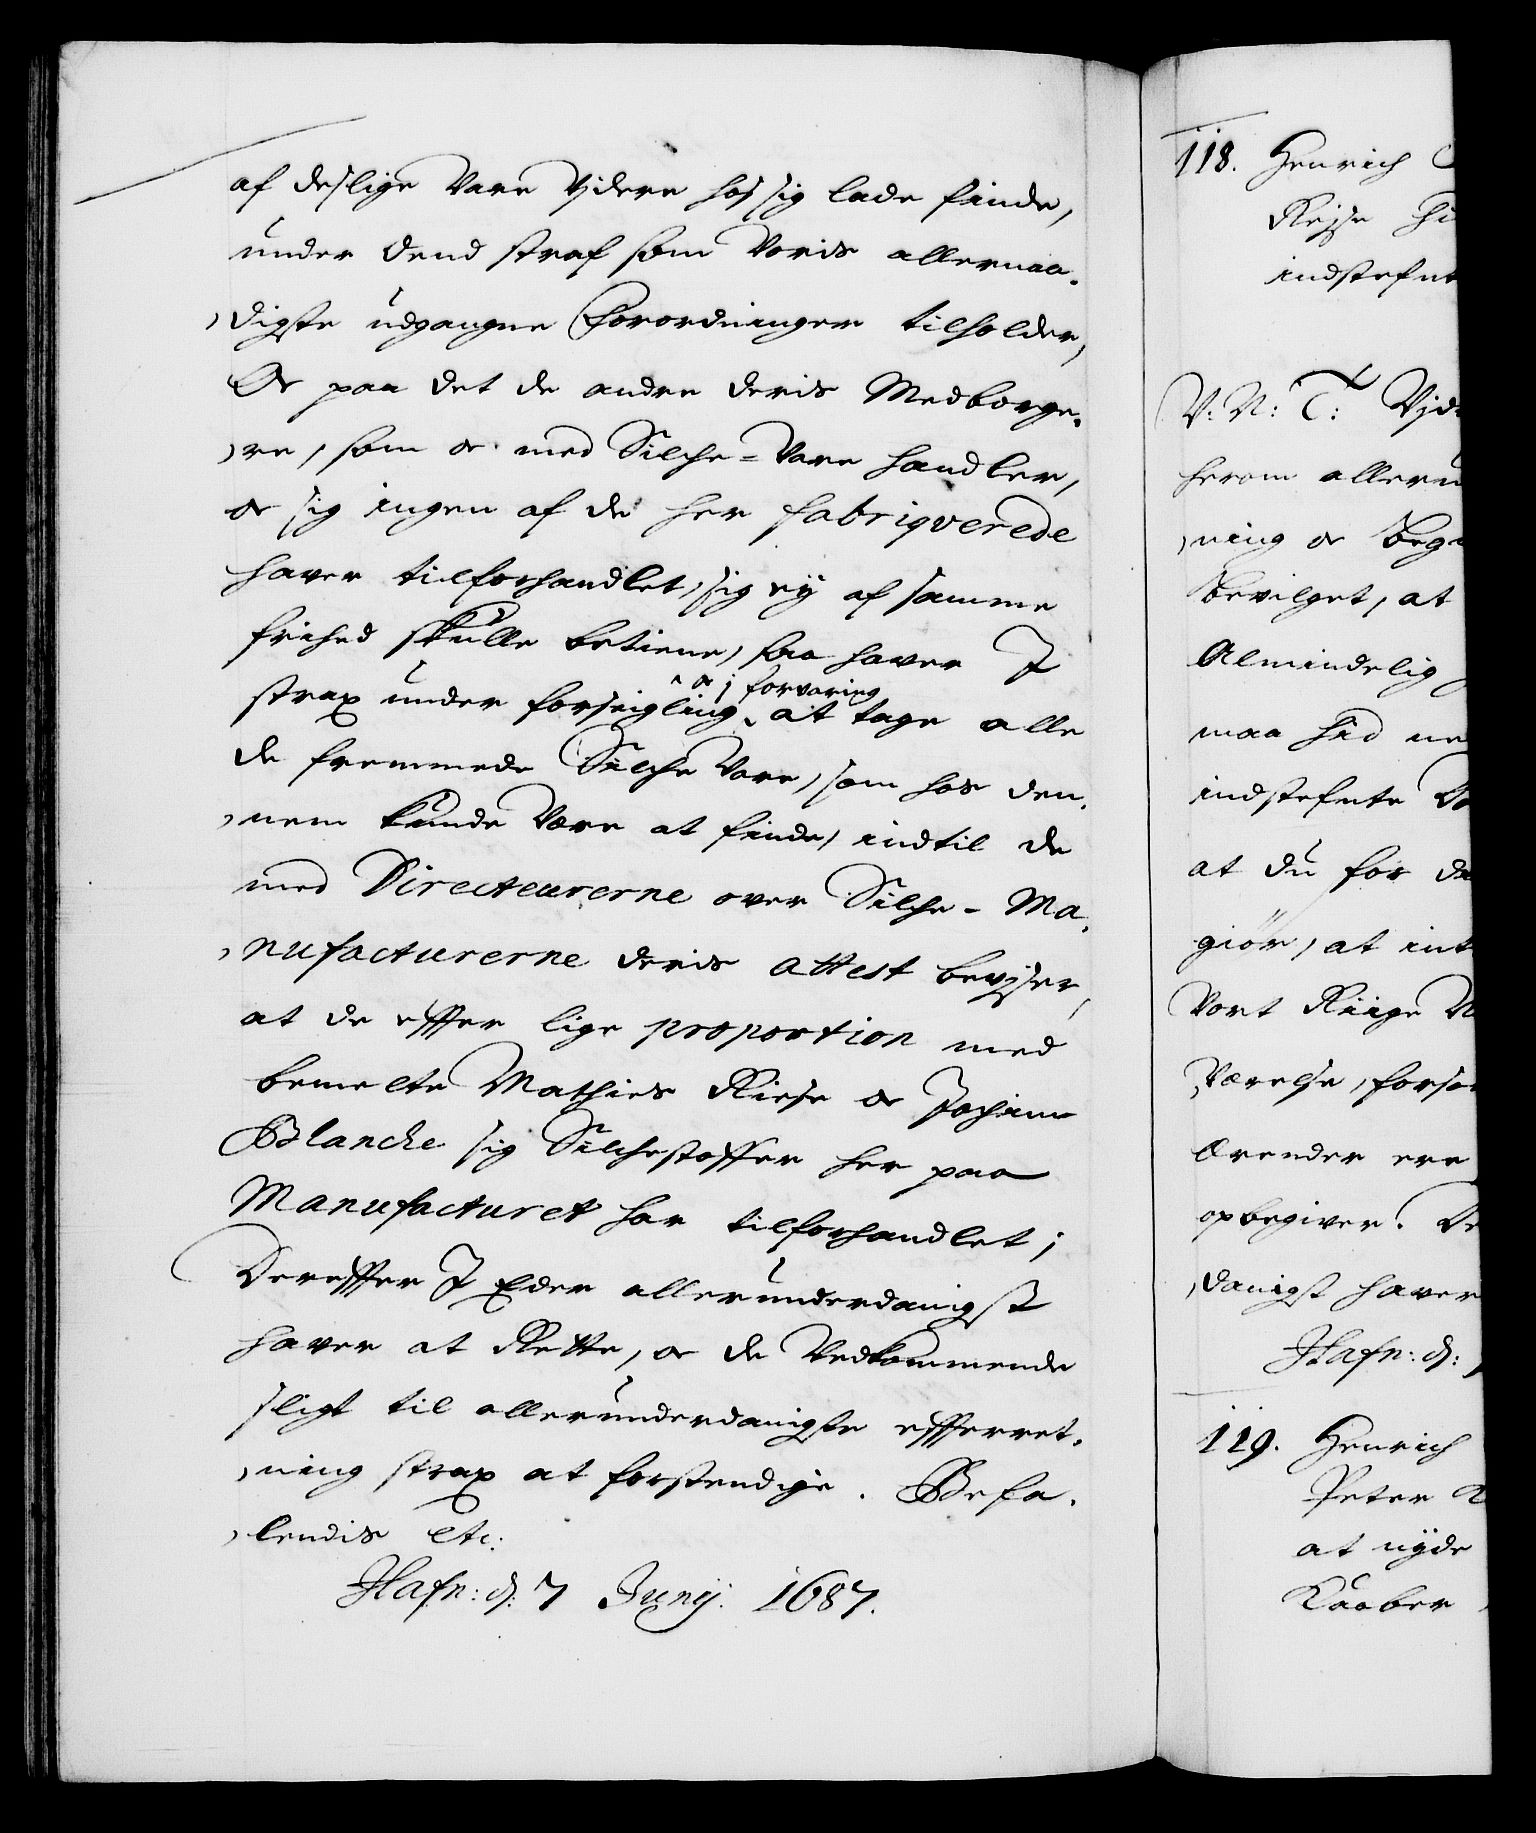 af deslige Vare Vjdere hos sig lade finde,
under dend straf som Voris allernaa-
digste udgangne Forordninger tilholder,
Oc paa det de andre deris Medborge-
re, som oc med Silche-Vare handler,
oc sig ingen af de her fabriqverede
haver tilforhandlet, sig ej af samme
frihed skulle betiene, saa haver I
strax under forseigling oc j forvaring at tage alle
de fremmede Silche Vare, som hos den-
nem kunde Være at finde, indtil de
med Directeurerne over Silche-Ma-
nufacturerne deris attest bevjser,
at de effter lige proportion med
bemelte Mathies Riese oc Jochim
Blancke sig Silchestoffer her paa
Manufacturet har tilforhandlet;
Dereffter I Eder allerunderdanigst
haver at Rette, oc de Vedkommende
sligt til allerunderdanigste effterret-
ning strax at forstendige. Befa-
lendis etc:
Hafn: d: 7 Junij. 1687.
118. Henrich
Rejse hi
indstefnt
V: N: T: Vjd
herom alleru
ning oc Beg
bevilget, at
Almindelig
maa hid ne
indstefnte
at du for de
giør, at int
Vort Riige N
Værelse, fors
Ærender ere
opbegiver. De
danigst haver
Hafn: d:
119. Henrich
Peter
at nyde
Kaaber